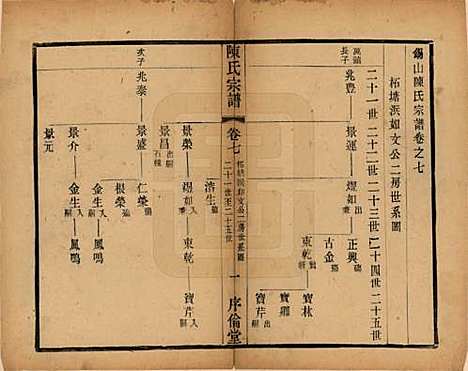 錫山陳氏宗譜卷之七
柘塘浜如文公二房世系圖
二十一世 二十二世 二十三世 二十四世 二十五世
萬頭
長子
兆豊 景運 煜如 正興
古金
東乾 寶林
寶卿
寶芹 出嗣
陳氏宗譜
卷七
柘塘浜如文公二房世系圖
二十一世至二十五世
一
序倫堂
次子
兆泰 景盛 仁榮
根榮
景榮 煜如 入嗣 東乾 入嗣 寶芹 入嗣
濬生
景昌 出嗣
景介 金生 嗣 鳳鳴
景元 金生 鳳鳴